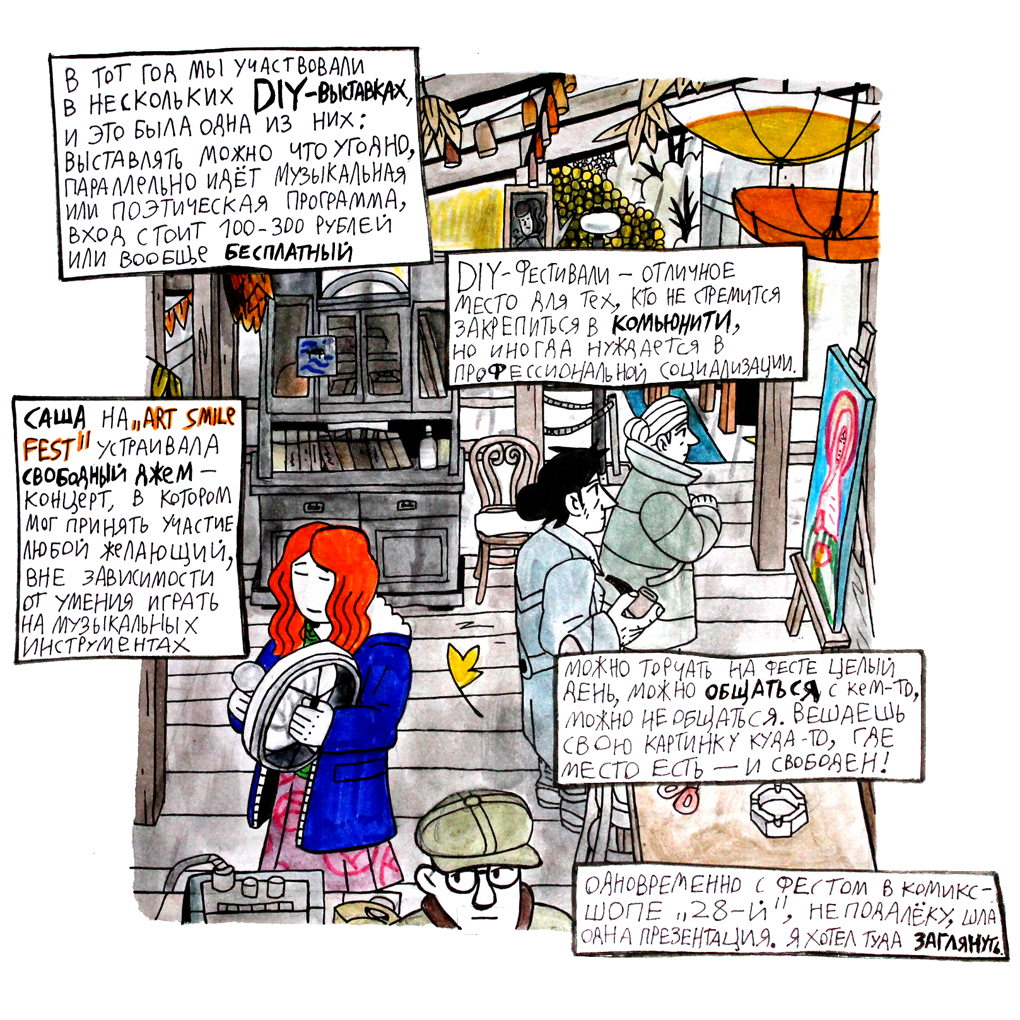 В ТОТ ГОД МЫ УЧАСТВОВАЛИ
В НЕСКОЛЬКИХ DIY-ВЫСТАВКАХ,
И ЭТО БЫЛА ОДНА ИЗ НИХ:
ВЫСТАВЛЯТЬ МОЖНО ЧТО УГОДНО,
ПАРАЛЛЕЛЬНО ИДЁТ МУЗЫКАЛЬНАЯ
ИЛИ ПОЭТИЧЕСКАЯ ПРОГРАММА,
ВХОД СТОИТ 100-300 РУБЛЕЙ
ИЛИ ВООБЩЕ БЕСПЛАТНЫЙ
DIY-ФЕСТИВАЛИ – ОТЛИЧНОЕ
МЕСТО ДЛЯ ТЕХ, КТО НЕ СТРЕМИТСЯ
ЗАКРЕПИТЬСЯ В КОМЬЮНИТИ,
НО ИНОГДА НУЖДАЕТСЯ В
ПРОФЕССИОНАЛЬНОЙ СОЦИАЛИЗАЦИИ.
САША НА „ART SMILE
FEST" УСТРАИВАЛА
СВОБОДНЫЙ ДЖЕМ –
КОНЦЕРТ, В КОТОРОМ
МОГ ПРИНЯТЬ УЧАСТИЕ
ЛЮБОЙ ЖЕЛАЮЩИЙ,
ВНЕ ЗАВИСИМОСТИ
ОТ УМЕНИЯ ИГРАТЬ
НА МУЗЫКАЛЬНЫХ
ИНСТРУМЕНТАХ
МОЖНО ТОРЧАТЬ НА ФЕСТЕ ЦЕЛЫЙ
ДЕНЬ, МОЖНО ОБЩАТЬСЯ С КЕМ-ТО,
МОЖНО НЕ ОБЩАТЬСЯ. ВЕШАЕШЬ
СВОЮ КАРТИНКУ КУДА-ТО, ГДЕ
МЕСТО ЕСТЬ – И СВОБОДЕН!
ОДНОВРЕМЕННО С ФЕСТОМ В КОМИКС-
ШОПЕ „28-Й", НЕПОДАЛЁКУ, ШЛА
ОДНА ПРЕЗЕНТАЦИЯ. Я ХОТЕЛ ТУДА ЗАГЛЯНУТЬ.